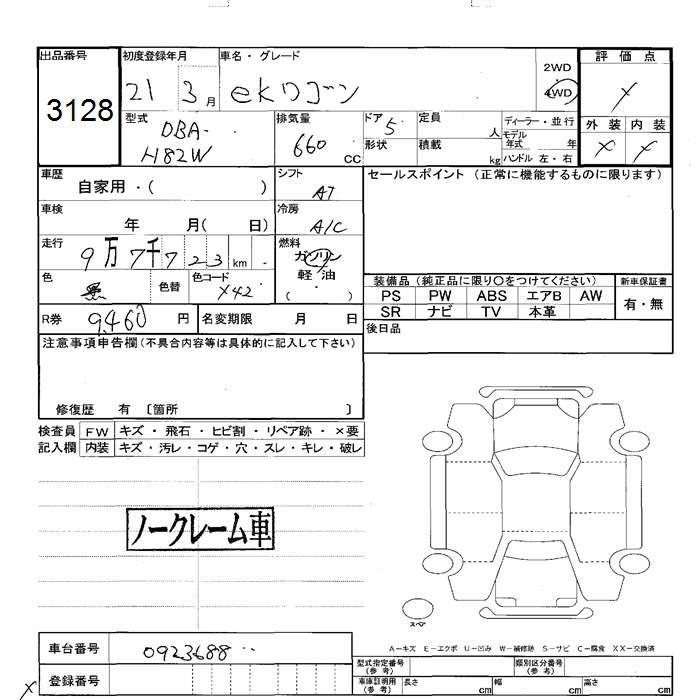 出品番号 初度登録年月 車名・グレード 2WD 評価点
3128 21 3月 ekワゴン 4WD
型式 排気量 ドア 定員 ディーラー・並行 外装 内装
DBA- 660 5 人 モデル
H82W CC 形状 積載 年式 年
kg ハンドル 左・右
車歴 自家用・( ) シフト AT セールスポイント (正常に機能するものに限ります)
車検 年 月( 日) 冷房 A/C
走行 9万7千723km 燃料 ガソリン
軽油
( )
色 黒 色替 色コード X42
装備品 (純正品に限り○をつけてください) 新車保証書
PS PW ABS エアB AW 有・無
SR ナビ TV 本革
R券 9,460 円 名変期限 月 日 後日品
注意事項申告欄(不具合内容等は具体的に記入して下さい)
修復歴 有 〔箇所 〕
検査員 FW キズ・飛石・ヒビ割・リペア跡・×要
記入欄 内装 キズ・汚レ・コゲ・穴・スレ・キレ・破レ
ノークレーム車
スペア
A-キズ E-エクボ U-凹み W-補修跡 S-サビ C-腐食 XX-交換済
車台番号 0923688
登録番号
型式指定番号 (参考) 類別区分番号 (参考)
車庫証明用 (参考) 長さ cm 幅 cm 高さ cm